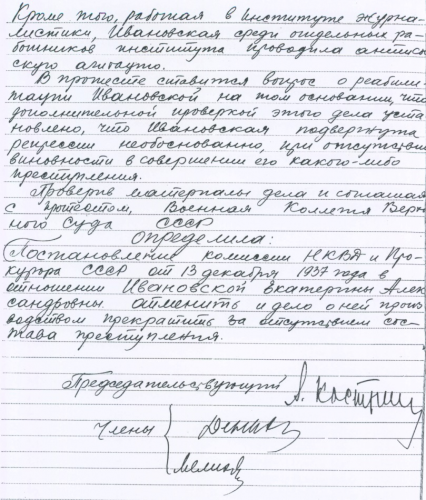 Кроме того, работая в Институте журна-
листики, Ивановская среди отдельных ра-
ботников института проводила антисов
скую агитацию.
В протесте ставится вопрос о реабили-
тации Ивановской на том основании, что
дополнительной проверкой этого дела уста
новлено, что Ивановская подвергнута
репрессии необоснованно, при отсутствии
виновности в совершении его какого-либо
преступления.
Проверив материалы дела и соглашаясь
с протестом, Военная Коллегия Верхов
ного Суда СССР
определила:
Постановление комиссии НКВД и Про-
курора СССР от 13 декабря 1937 года в
отношении Ивановской Екатерины Алек
сандровны отменить и дело о ней произ
водством прекратить за отсутствием сос-
тава преступления.
Председательствующий А. Костр
Члены